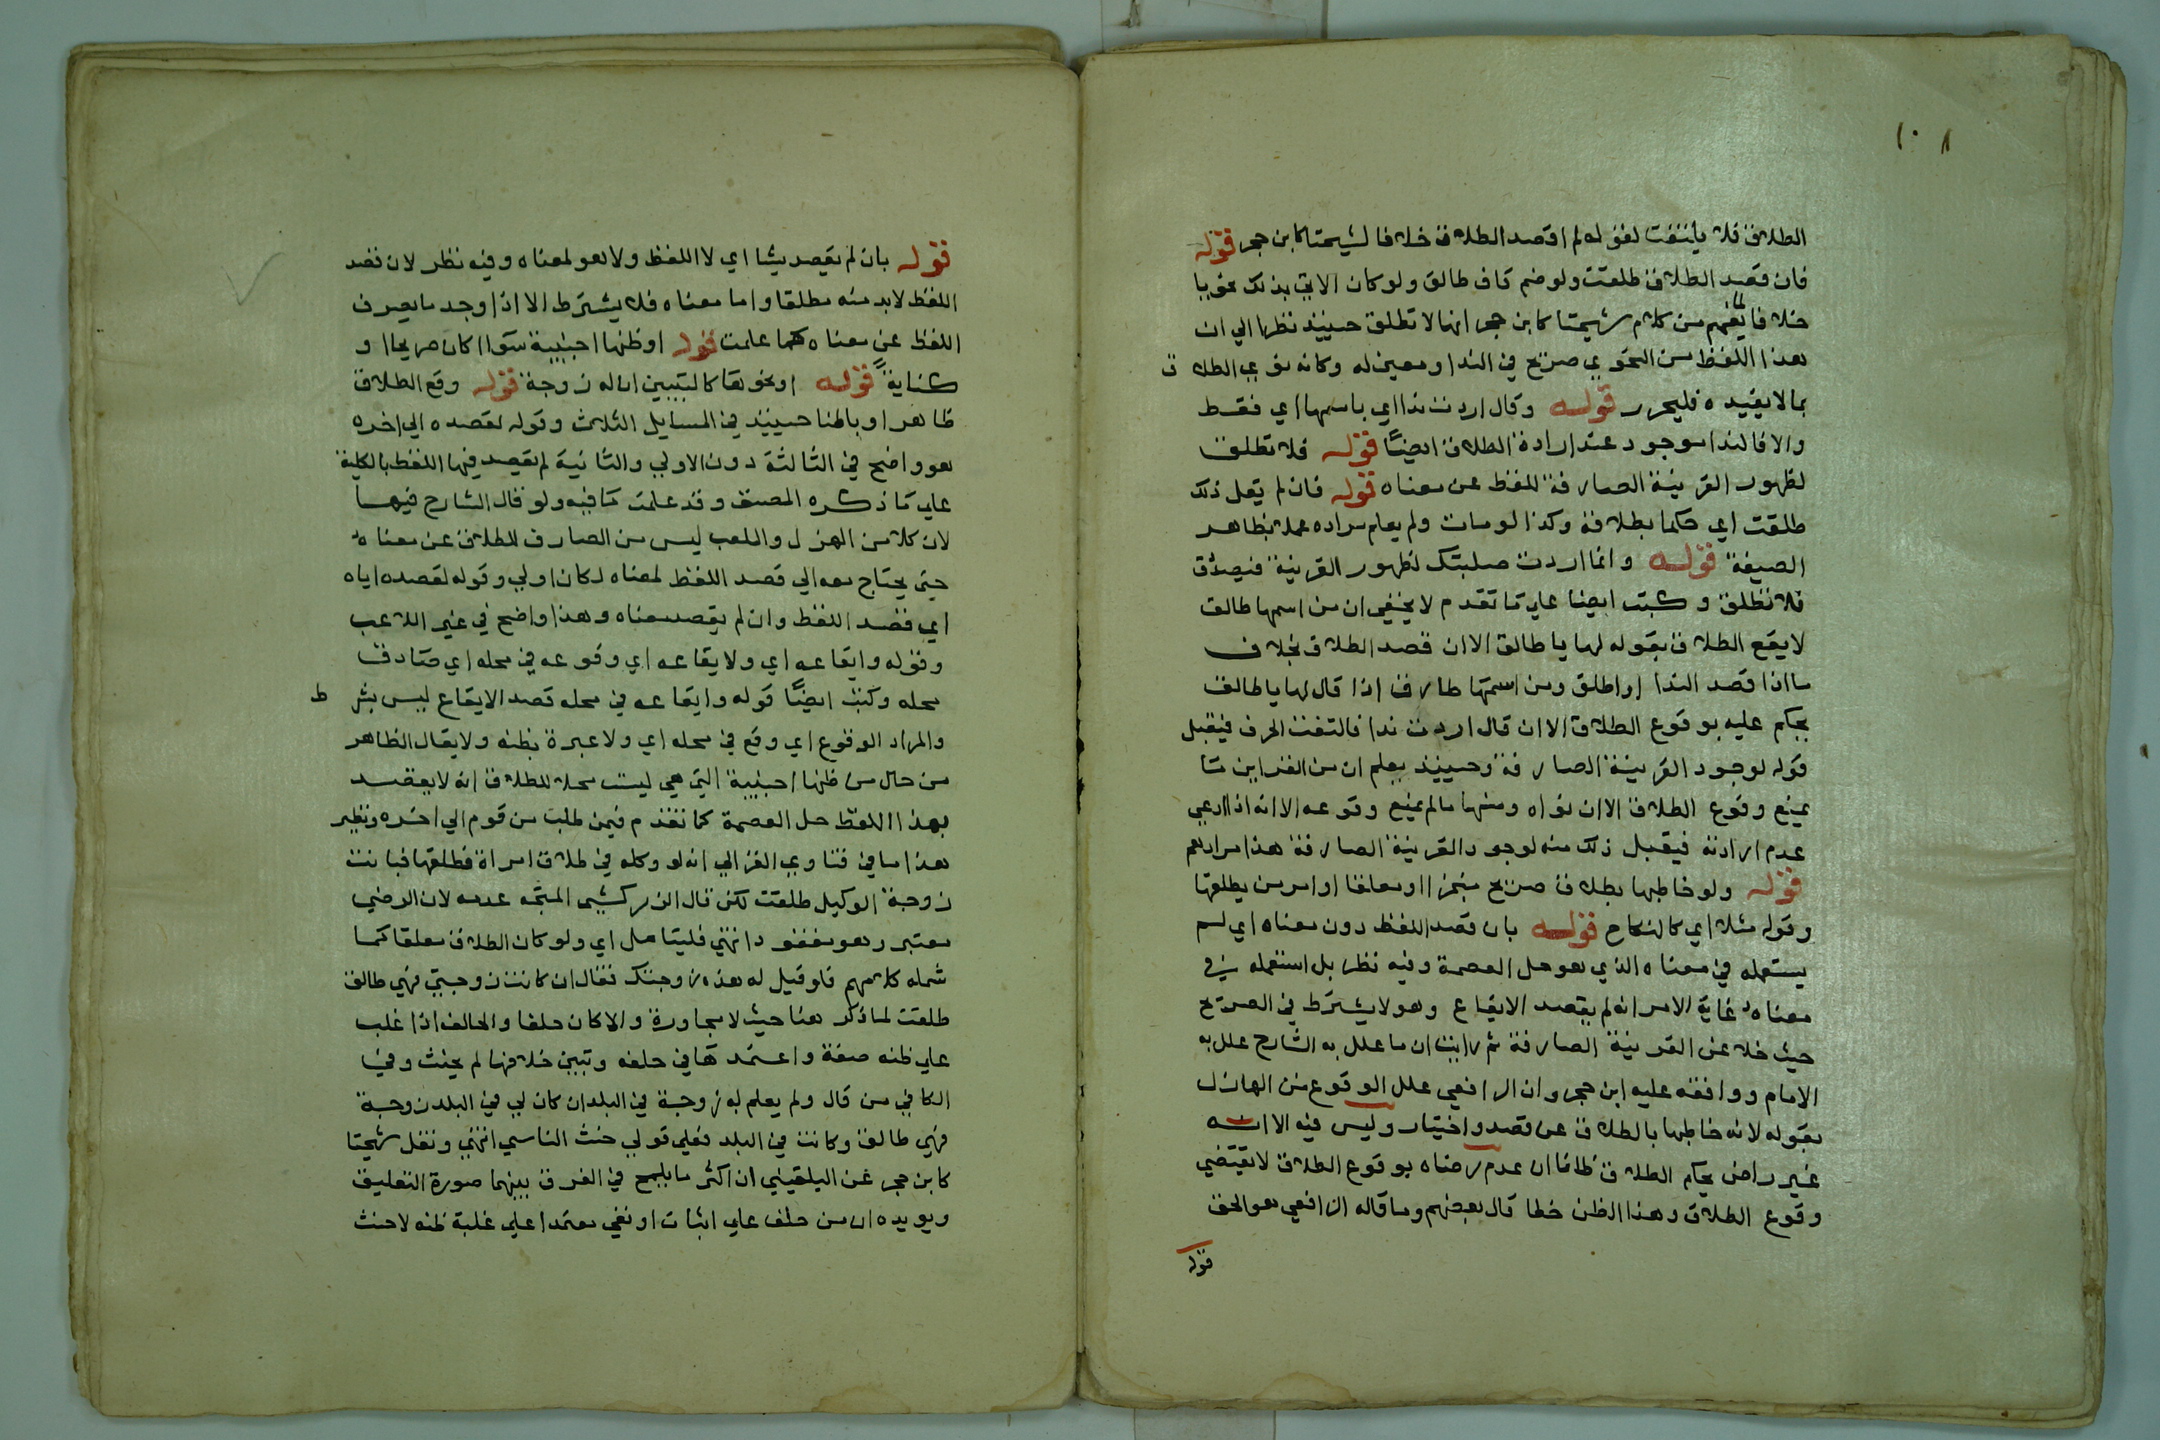 ١٠٨
الطلاق فلا يلتفت لقوله لم اقصد الطلاق خلافا لشيخنا كابن حجر قوله
فان قصد الطلاق طلقت ولو ضم قاف طالق ولو كان الاتي بذلك نحويا
خلافا لما يفهم من كلام شيخنا كابن حجر انها لا تطلق حينيذ نظرا الي ان
هذا اللفظ من النحوي صريح في الندا ومعين له وكانه نوي الطلاق
بما لا يفيده فليحرر قوله وقال اردت ندا اي باسمها اي فقط
والا فالندا موجود عند ارادة الطلاق ايضا قوله فلا تطلق
لظهور القرينة الصارفة للفظ عن معناه قوله فان لم يقل ذلك
طلقت اي حكما بطلاقه وكذا لو مات ولم يعلم مراده عملا بظاهر
الصيغة قوله وانما اردت صلبتك لظهور القرينة فيصدق
فلا تطلق وكتب ايضا علي ما تقدم لا يخفي ان من اسمها طالق
لا يقع الطلاق بقوله لها يا طالق الا ان قصد الطلاق بخلاف
ما اذا قصد الندا او اطلق ومن اسمها طارق اذا قال لها يا طالق
يحكم عليه بوقوع الطلاق الا ان قال اردت ندا فالتفت الحرف فيقبل
قوله لوجود القرينة الصارفة وحينيذ يعلم ان من القراين ما
يمنع وقوع الطلاق الا ان نواه ومنها ما لم يمنع وقوعه الا انه اذا ادعي
عدم ارادته فيقبل ذلك منه لوجود القرينة الصارفة هذا مرادهم
قوله ولو خاطبها بطلاق صريح منجزا او معلقا او امر من يطلقها
وقوله مثلا اي كالنكاح قوله بان قصد اللفظ دون معناه اي لم
يستعمله في معناه الذي هو حل العصمة وفيه نظر بل استعمله في
معناه غاية الامر انه لم يقصد الايقاع وهو لا يشترط في الصريح
حيث خلا عن القرينة الصارفة ثم رايت ان ما علل به الشارح علل به
الامام ووافقه عليه ابن حجر وان الرافعي علل الوقوع من الهازل
بقوله لانه خاطبها بالطلاق عن قصد واختيار وليس فيه الا انه
غير راض بحكم الطلاق ظانا ان عدم رضاه بوقوع الطلاق لا يقتضي
وقوع الطلاق وهذا الظن خطا قال بعضهم وما قاله الرافعي هو الحق
قوله
قوله بان لم يقصد شيا اي لا اللفظ ولا هو لمعناه وفيه نظر لان قصد
اللفظ لا بد منه مطلقا واما معناه فلا يشترط الا اذا وجد ما يصرف
اللفظ عن معناه كما علمت قوله او ظنها اجنبية سوا اكان صريحا او
كناية قوله او نحوها كالتبيين ان له زوجة قوله وقع الطلاق
ظاهرا وباطنا حينيذ في المسايل الثلاث وقوله لقصده الي اخره
هو واضح في الثالثة دون الاولي والثانية لم يقصد فيها اللفظ بالكلية
علي ما ذكره المصنف وقد علمت ما فيه ولو قال الشارح فيهما
لان كلا من الهزل واللعب ليس من الصارف للطلاق عن معناه
حتي يحتاج معه الي قصد اللفظ لمعناه لكان اولي وقوله لقصده اياه
اي قصد اللفظ وان لم يقصد معناه وهذا واضح في غير اللاعب
وقوله وايقاعه اي ولا يقاعه اي وقوعه في محله اي صادف
محله وكتب ايضا قوله وايقاعه في محله قصد الايقاع ليس بشرط
والمراد الوقوع اي وقع في محله اي ولا عبرة بظنه ولا يقال الظاهر
من حال من ظنها اجنبية التي هي ليست محلا للطلاق انه لا يقصد
بهذا اللفظ حل العصمة كما تقدم فيمن طلب من قوم الي اخره ونظير
هذا ما في فتاوي الغزالي انه لو وكله في طلاق امراة فطلقها فبانت
زوجة الوكيل طلقت لكن قال الزركشي المتجه عدمه لان الرضي
معتبر وهو مفقود انتهي فليتامل اي ولو كان الطلاق معلقا كما
شمله كلامهم فلو قيل له هذه زوجتك فقال ان كانت زوجتي فهي طالق
طلقت لما ذكر هنا حيث لا مجاورة والا كان حلفا والحالف اذا غلب
علي ظنه صفة واعتمدها في حلفه وتبين خلافها لم يحنث وفي
الكافي من قال ولم يعلم له زوجة في البلد ان كان لي في البلد زوجة
فهي طالق وكانت في البلد فعلي قولي حنث الناسي انتهي ونقل شيخنا
كابن حجر عن البلقيني ان اكثر ما يلمح في الفرق بينهما صورة التعليق
ويويده ان من حلف علي اثبات او نفي معتمدا علي غلبة ظنه لا حنث